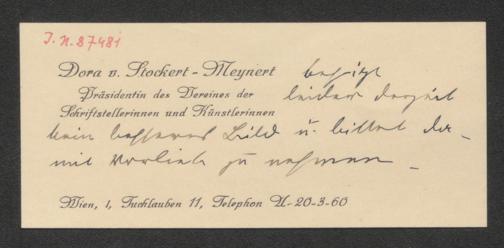 J.N.87481
Dora v. Stockert-Meynert besitzt
Präsidentin des Vereines der leider derzeit
Schriftstellerinnen und Künstlerinnen
kein besseres Bild u. bittet da-
mit vorlieb zu nehmen –
Wien, I, Tuchlauben 11, Telephon U-20-3-60